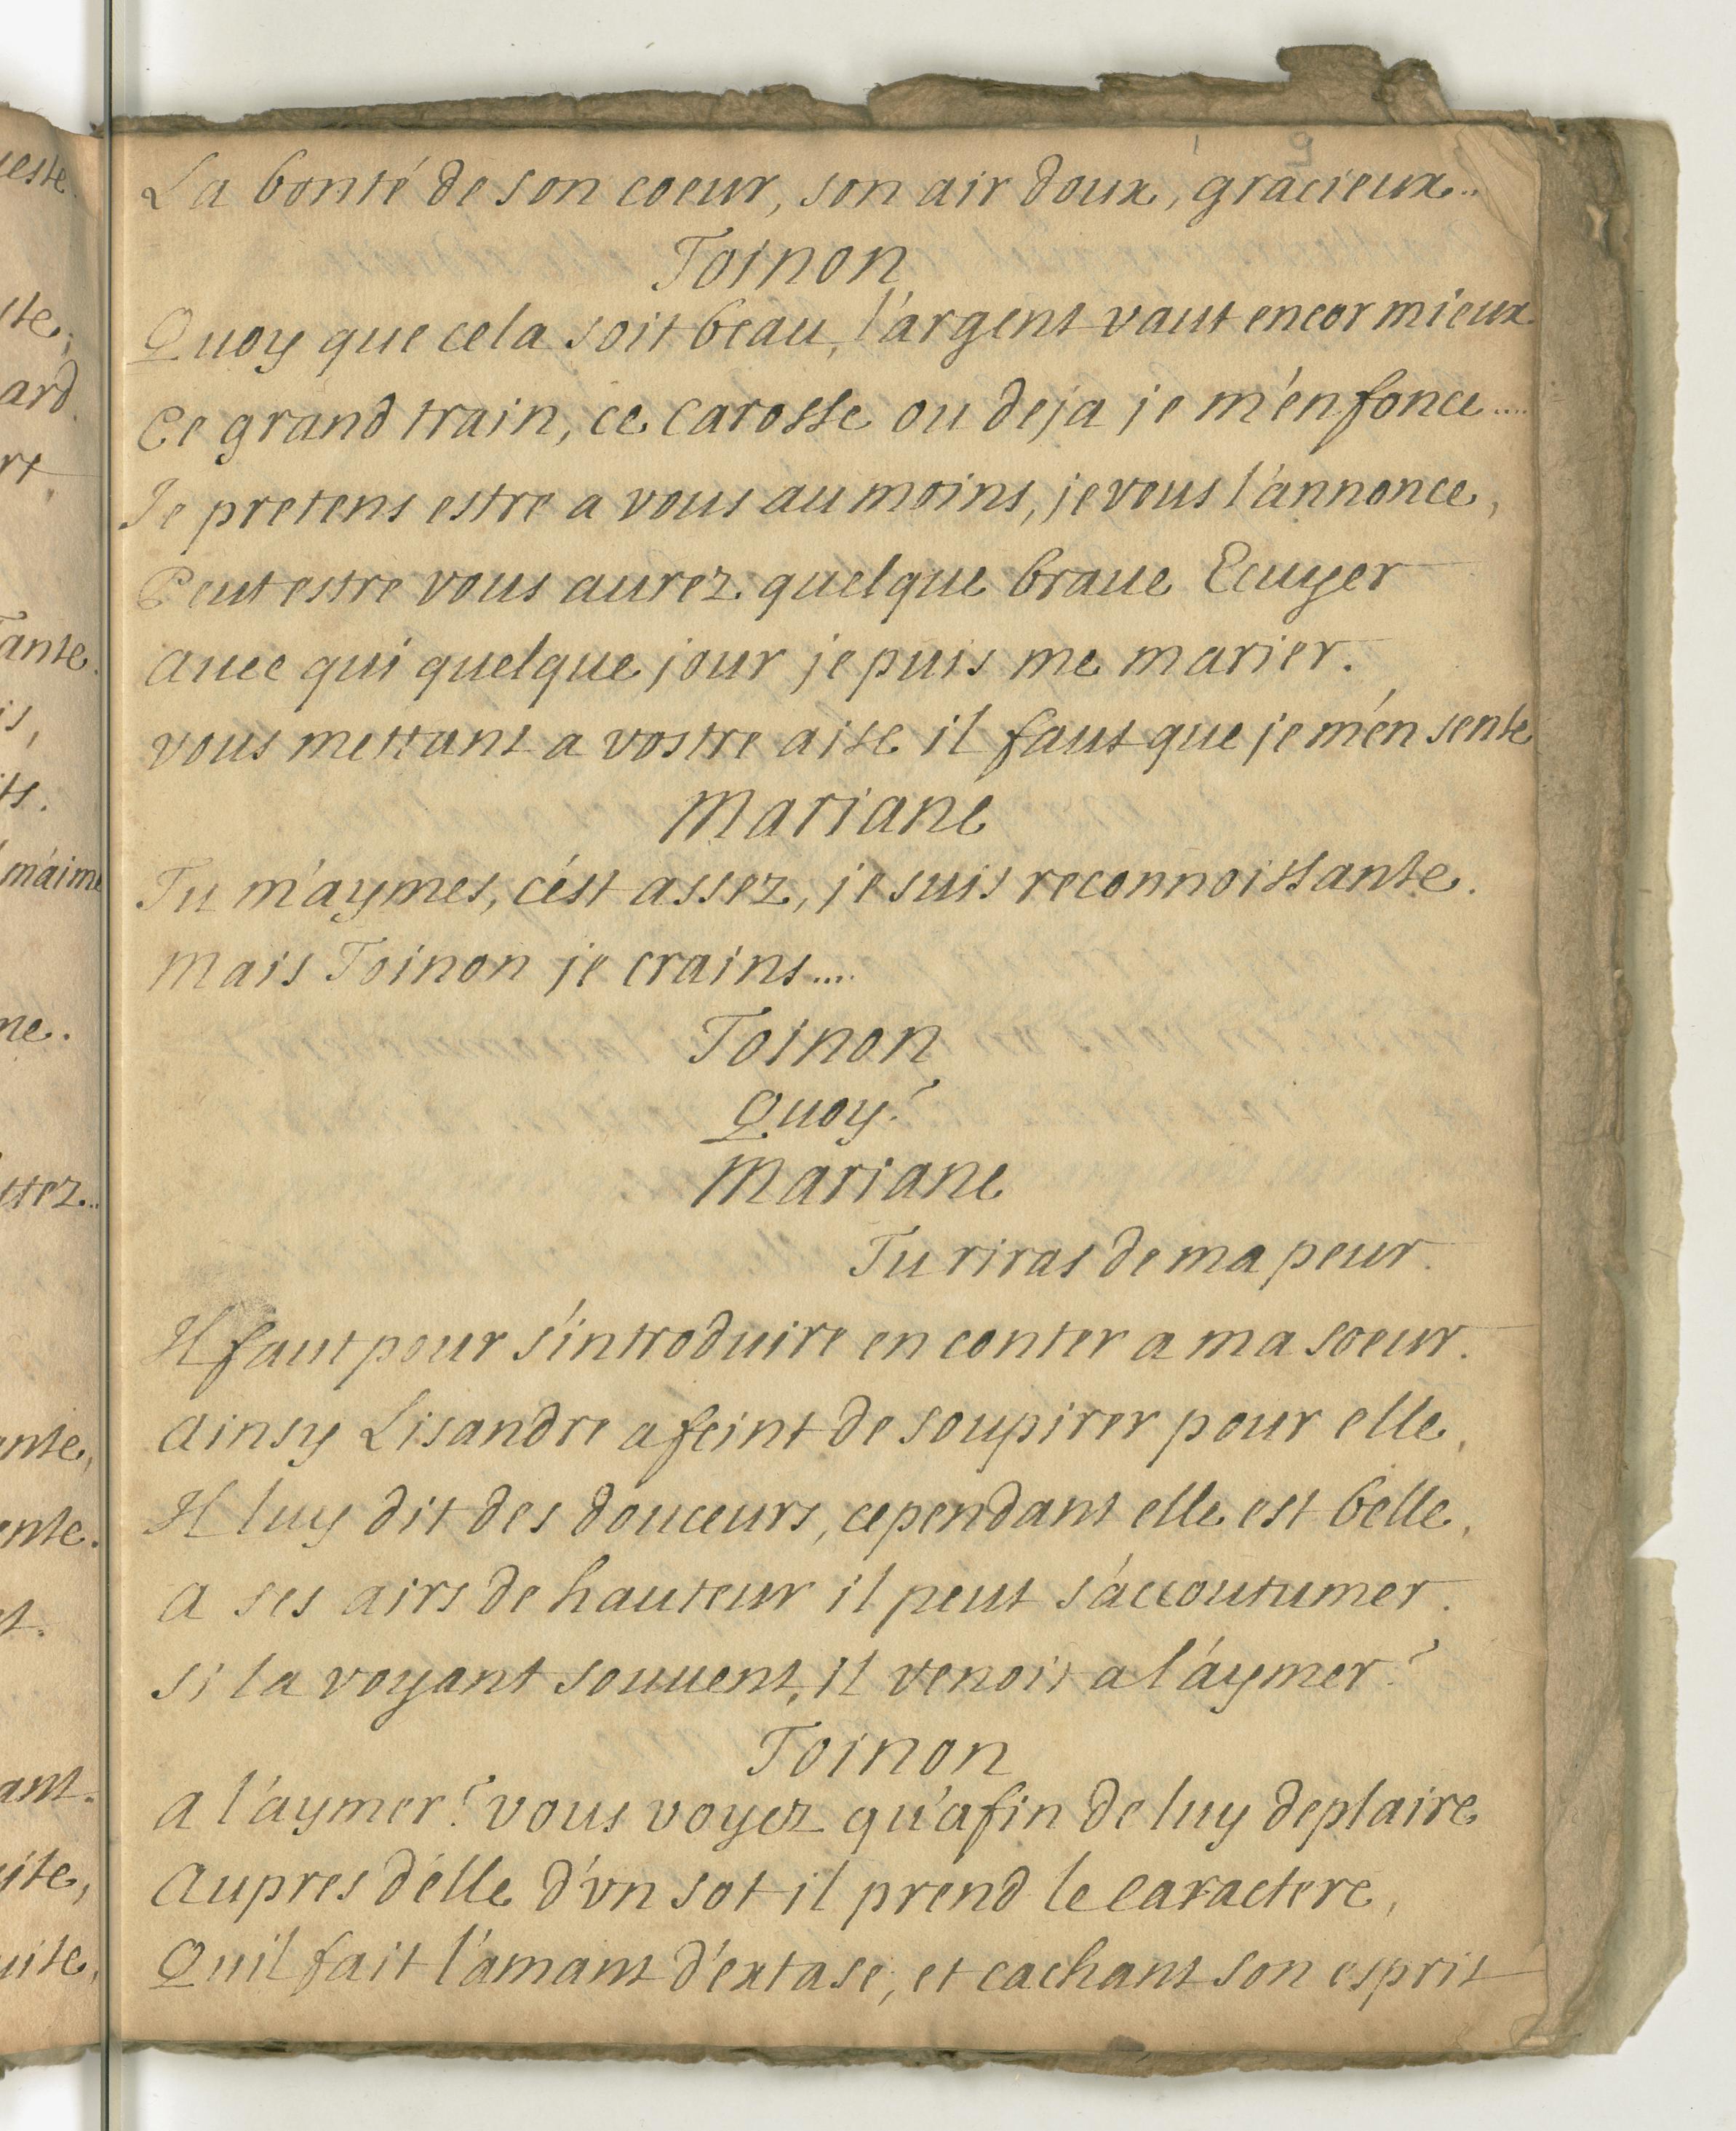 9
La bonté de son coeur, son air doux, gracieux..
Toinon
Quoy que cela soit beau, l'argent vaut encor mieux
Ce grand train, ce Carosse ou deja je m'enfonce....
Je pretens estre a vous au moins, je vous l'annonce,
Peutestre vous aurez quelque braue Ecuyer
auec qui quelque jour je puis me marier.
vous mettant a vostre aise il faut que je m'en sente
Mariane
Tu m'aymes, c'est assez, je suis reconnoissante.
Mais Toinon je crains....
Toinon
Quoy?
Mariane
Tu riras de ma peur.
Il faut pour s'introduire en conter a ma soeur.
ainsy Lisandre a feint de soupirer pour elle,
Il luy dit des douceurs, cependant elle est belle,
a ses airs de hauteur il peut s'accoutumer.
si la voyant souuent, il venoit a l'aymer?
Toinon
a l'aymer? vous voyez qu'afin de luy deplaire
Aupres d'elle d'vn sot il prend le caractere,
Qu'il fait l'amant d'extase, et cachant son esprit